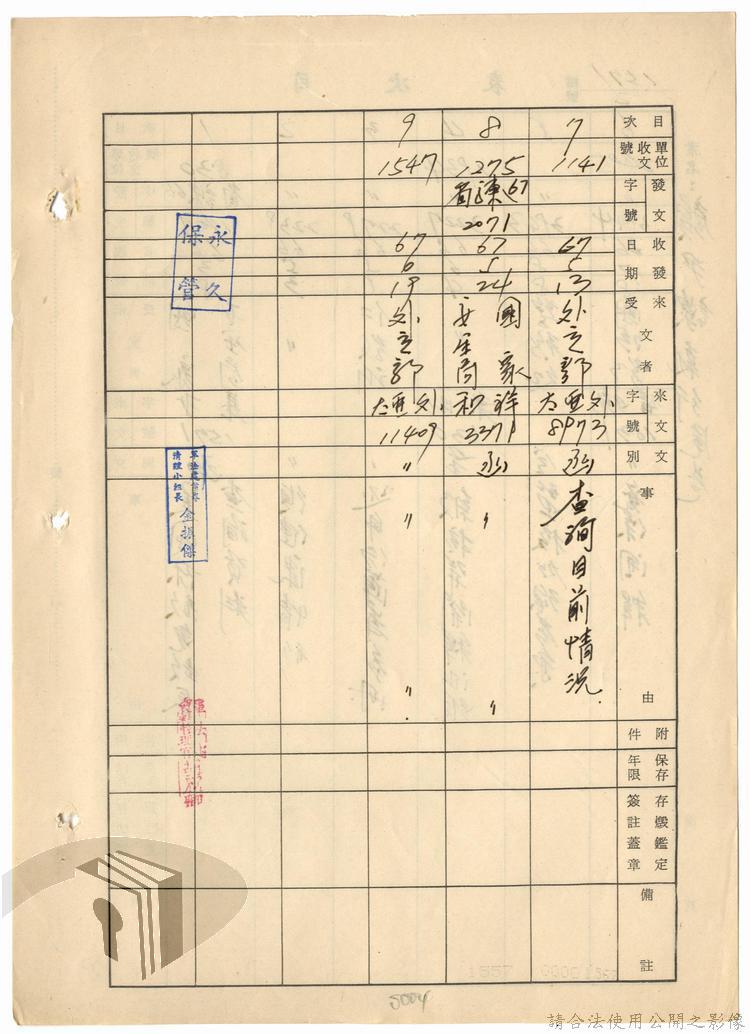 目次
單位收文號
發文字號
收發日期
來文受者
來文字號
文別
事由
附件
保存年限
存燬鑑定簽註蓋章
備註
7
1141
67
5
13
外交部
北亞外
8973
函
查詢目前情況
8
1275
67
2071
67
5
24
國家安全局
和祥
3379
函
〃
〃
9
1547
67
6
19
外交部
北亞外
11409
〃
〃
〃
永久保管
清理小組長
金振傑
5004
請合法使用公開之影像